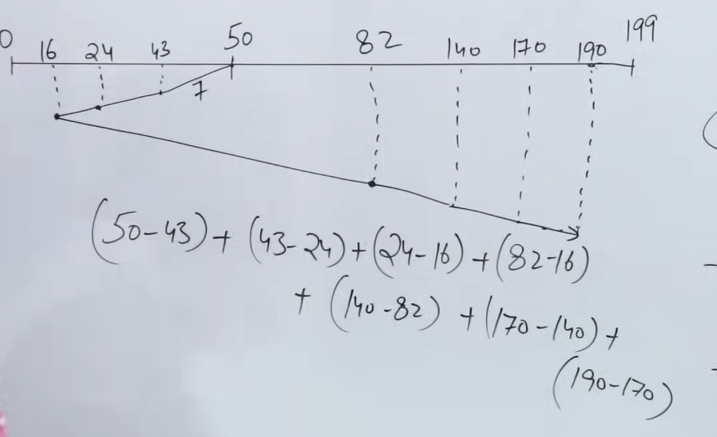 0 16 24 43 50 82 140 170 190 199
7
(50-43)+(43-24)+(24-16)+(82-16)
+(140-82)+(170-140)+
(190-170)